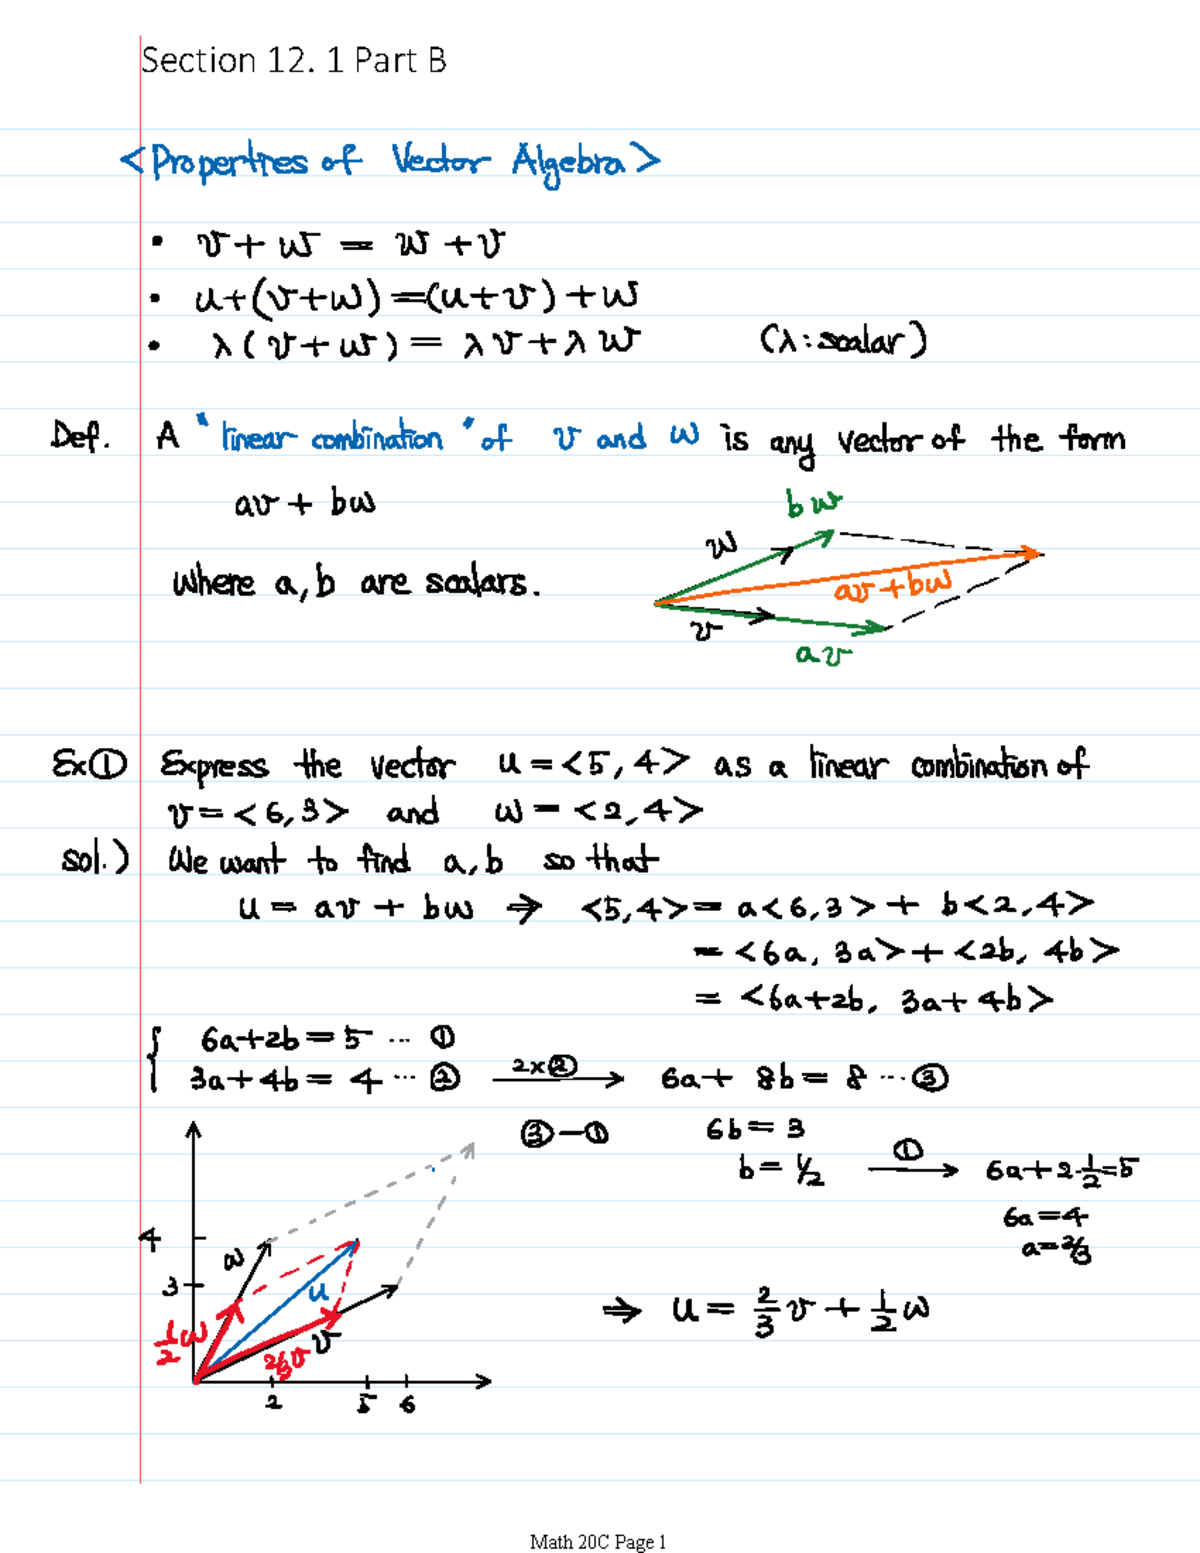 Section 12. 1 Part B
<Properties of Vector Algebra>
• v + w = w + v
• u+(v+w) =(u+v) + w
• λ ( v + w ) = λ v + λ w (λ : scalar)
Def. A "linear combination" of v and w is any vector of the form
av + bw
where a, b are scalars.
bw
w
av + bw
v
av
Ex① Express the vector u = <5, 4> as a linear combination of
v = <6, 3> and w = <2, 4>
sol.) We want to find a, b so that
u = av + bw → <5, 4> = a<6, 3> + b<2, 4>
= <6a, 3a> + <2b, 4b>
= <6a+2b, 3a+4b>
6a+2b = 5 ... ①
3a+4b = 4 ... ② 2×② → 6a + 8b = 8 ... ③
③ − ① 6b = 3
b = 1/2 ① → 6a + 2·1/2 = 5
6a = 4
a = 2/3
⇒ u = 2/3 v + 1/2 w
4
w
3
u
1/2 w
v
2/3 v
2 5 6
Math 20C Page 1